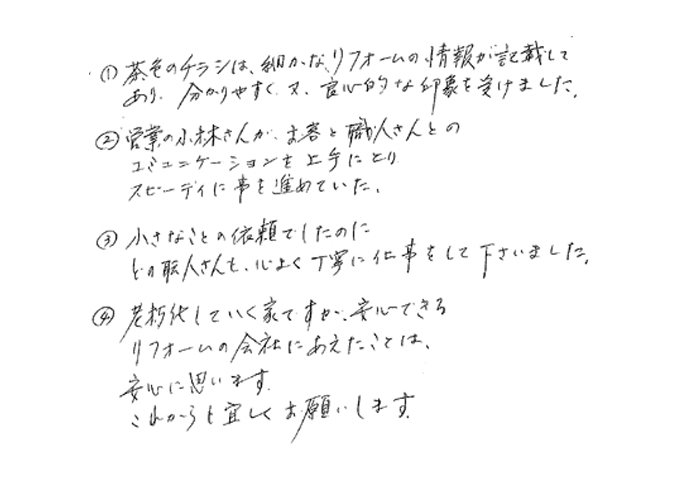 ① 茶色のチラシは、細かな、リフォームの情報が記載して
あり、分かりやすく、又、良心的な印象を受けました。
② 営業の小林さんが、お客と職人さんとの
コミュニケーションを上手にとり
スピーディに事を進めていた。
③ 小さなことの依頼でしたのに
どの職人さんも、心よく丁寧に仕事をして下さいました。
④ 老朽化していく家ですが、安心できる
リフォームの会社にあえたことは、
安心に思います。
これからも宜しくお願いします。